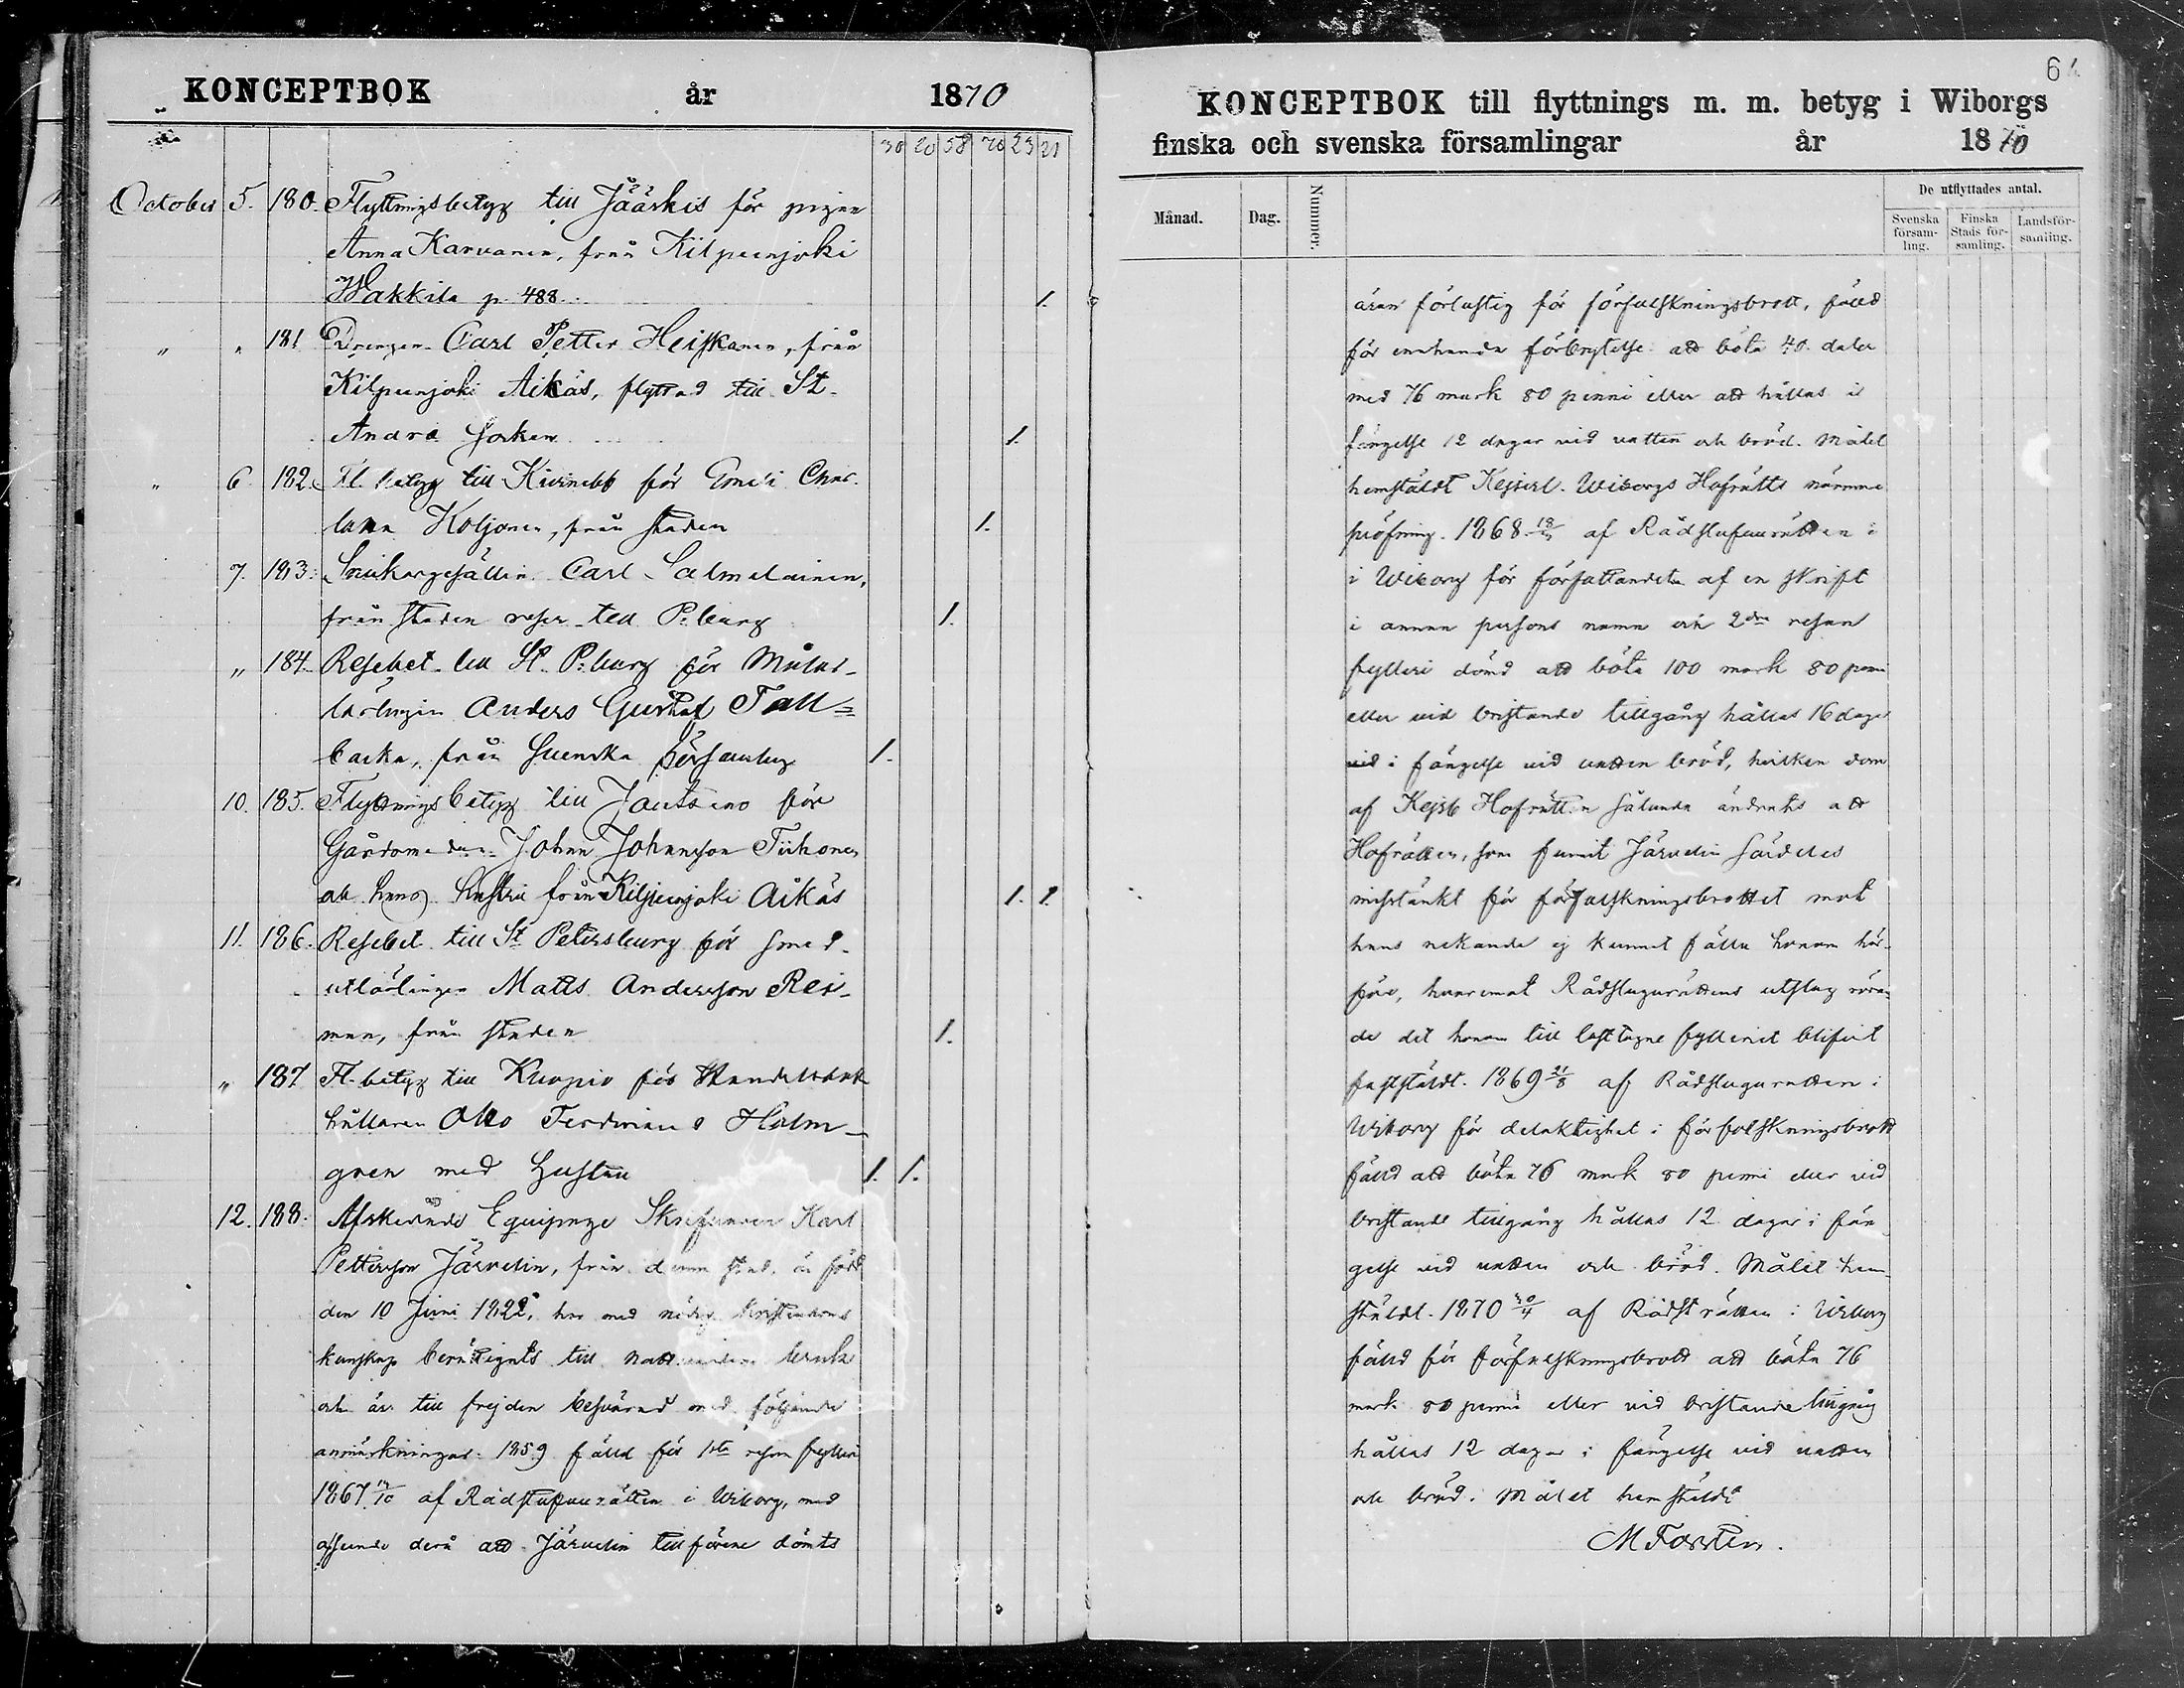 KONCEPTBOK år 1870
30 20 58 70 23 21
October 5. 180. Flyttningsbetyg till Jääskis för pigan
Anna Karvanen, från Kilpeenjoki
Wakkila p. 488. 1.
" " 181 Drengen Carl Petter Heiskanen, från
Kilpeenjoki Aikäs, flyttad till St.
Andræ Socken 1.
" 6. 182. Fl. betyg till Kivinebb för Char-
Koljonen, från staden 1.
7. 183. Snickargesällen Carl Salmelainen,
från staden reser till P:burg 1.
" 184. Resebet. till St. P:burg för Målar-
lärlingen Anders Gustaf Tall=
backa, från Svenska församling 1.
10. 185. Flyttningsbetyg till Jautseno för
Johan Johansson Tiihonen
och hans hustru från Kilpeenjoki Aikäs 1. 1.
11. 186. Resebet. till St Petersburg för smed-
utlärlingen Matts Andersson Rei-
man, från staden 1.
" 187 Fl. betyg till Kuopio för
hållaren Otto Ferdinand Holm-
gren med hustru 1. 1.
12. 188. Afskedade Equipage Skrifvaren Karl
Pettersson Järvelin, från denna stad, är född
den 10 Juni 1822, har med nödig kristendoms
kunskap berättigats till nattvardens bruk
och är till frejden besvärad med följande
anmärkningar: 1859 fälld för 1sta resan fylleri
1867 /10 af Rådstufvurätten i Wiborg, med
afseende derå att Järvelin tillförene dömts
64
KONCEPTBOK till flyttnings m. m. betyg i Wiborgs
finska och svenska församlingar år 1870
Månad. Dag. Nummer. De utflyttades antal.
Svenska församling. Finska Stads församling. Landsförsamling.
äran förlustig för förfalskningsbrott, fälld
för enahanda förbrytelse att böta 40 daler
med 76 mark 80 penni eller att hållas i
fängelse 12 dagar vid vatten och bröd. Målet
hemstäldt Kejserl. Wiborgs Hofrätts närmare
pröfning. 1868 af Rådstufvurätten i
i Wiborg för författandet af en skrift
i annan persons namn och 2dra resan
fylleri dömd att böta 100 mark 80 penni
eller vid bristande tillgång hållas 16 dagar
vid i fängelse vid vatten bröd, hvilken dom
af Kejs. Hofrätten sålunda ändrats att
Hofrätten, som funnit Järvelin särdeles
misstänkt för förfalskningsbrottet mot
hans nekande ej kunnat fälla honom här-
före, hvaremot Rådstugurättens utslag röran-
de det honom till last lagne fylleriet blifvit
fastställdt. 1869 21/8 af Rådstugurätten i
Wiborg för delaktighet i förfalskningsbrott
fälld att böta 76 mark 80 penni eller vid
bristande tillgång hållas 12 dagar i fän-
gelse vid vatten och bröd. Målet hem-
stäldt. 1870 /4 af Rådst.rätten i Wiborg
fälld för förfalskningsbrott att böta 76
mark 80 penni eller vid bristande tillgång
hållas 12 dagar i fängelse vid vatten
och bröd. Målet hemstäldt
M Forstén.